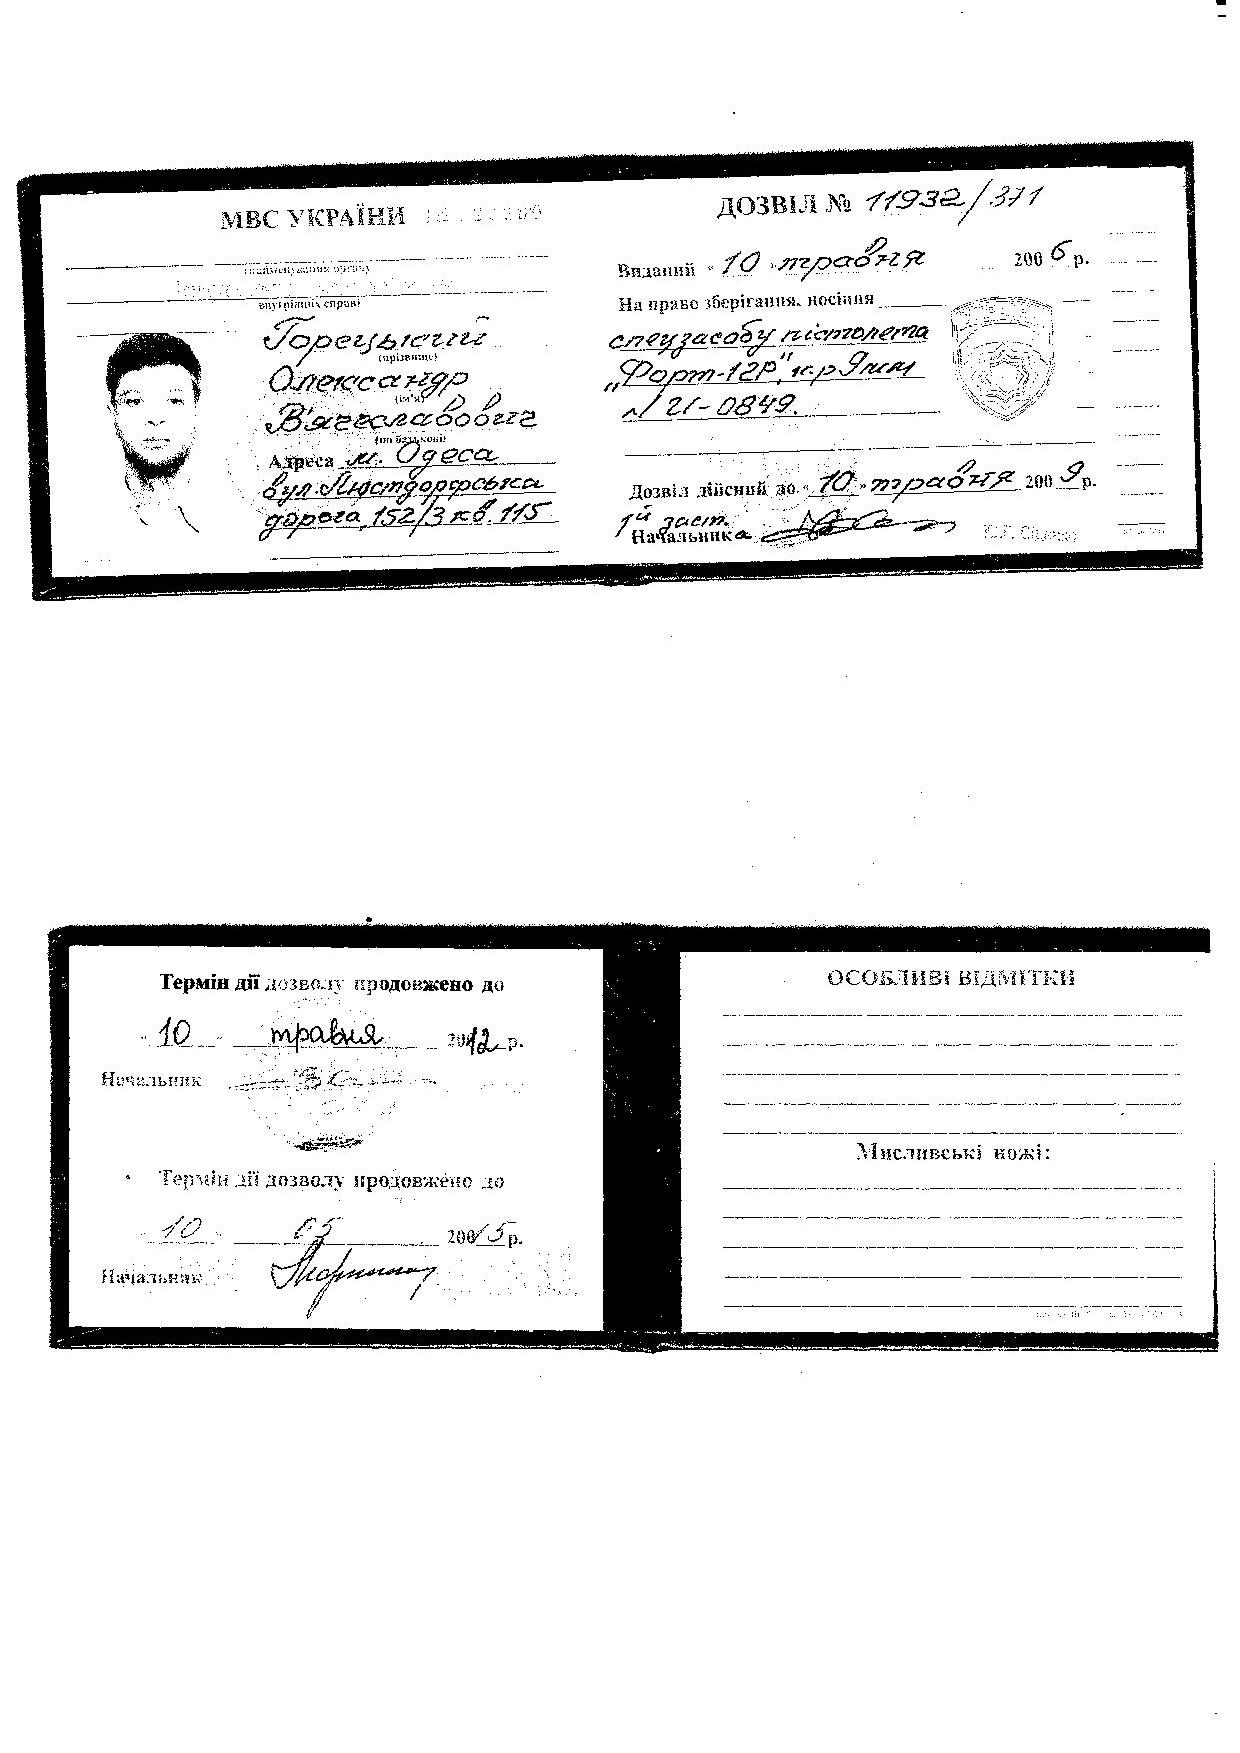 МВС УКРАЇНИ
(найменування органу
внутрішніх справ)
Горецький
(прізвище)
Олександр
(ім'я)
В'ячеславович
(по батькові)
Адреса м. Одеса
вул. Люстдорфська
дорога, 152/3 кв. 115
ДОЗВІЛ № 11932/371
Виданий "10" травня 2006 р.
На право зберігання, носіння
спецзасобу пістолета
„Форт-12Р", к. р 9мм
№ 21-0849.
Дозвіл дійсний до "10" травня 2009 р.
1й заст.
Начальника
Термін дії дозволу продовжено до
"10" травня 2012 р.
Начальник
Термін дії дозволу продовжено до
"10" 05 20015 р.
Начальник
ОСОБЛИВІ ВІДМІТКИ
Мисливські ножі: